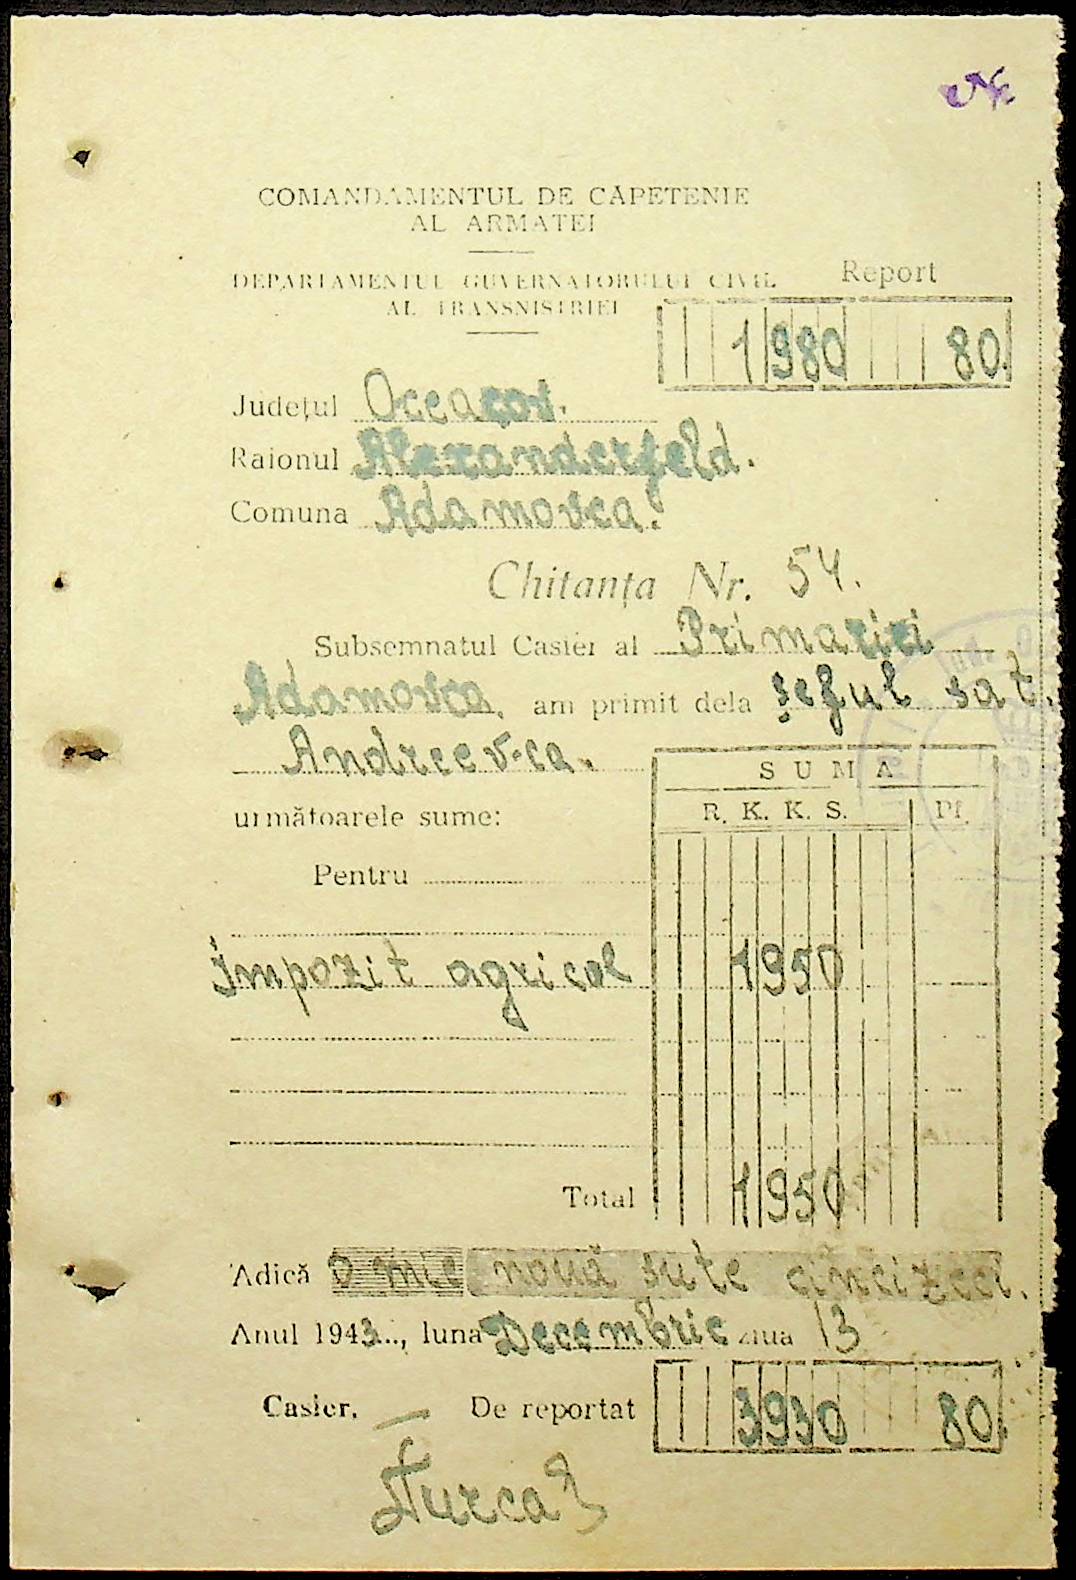 COMANDAMENTUL DE CĂPETENIE
AL ARMATEI
DEPARTAMENTUL GUVERNATORULUI CIVIL
AL TRANSNISTRIEI
Report
1980 80.
Județul Oceacov.
Raionul Alexanderfeld.
Comuna Adamovca.
Chitanța Nr. 54.
Subsemnatul Casier al Primariei
Adamovca, am primit dela șeful sat.
Andreevca.
SUMA
următoarele sume:
R. K. K. S. Pf.
Pentru
Impozit agricol 1950
Total 1950
Adică o mie nouă sute cincizeci.
Anul 1943.., luna Decembrie ziua 13
Casier, De reportat 3930 80.
Țurca